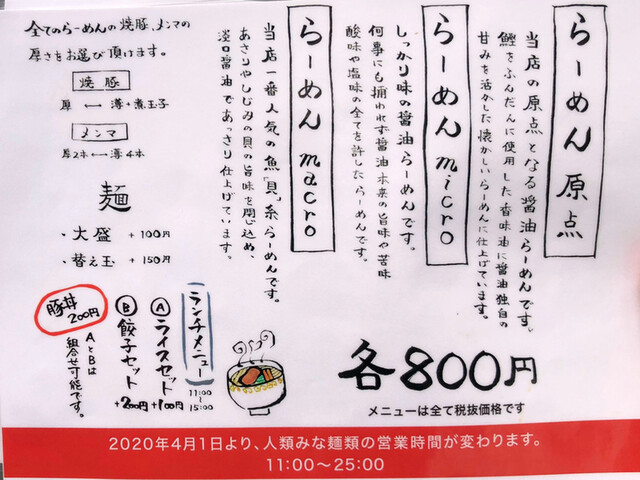 らーめん 原点
当店の原点となる醤油らーめんです。
鰹をふんだんに使用した香味油に醤油独自の
甘みを活かした懐かしいらーめんに仕上げています。
らーめん micro
しっかり味の醤油らーめんです。
何事にも捕われず醤油本来の旨味や苦味
酸味や塩味の全てを許したらーめんです。
らーめん macro
当店一番人気の魚"貝"系らーめんです。
あさりやしじみの貝の旨味を閉じ込め、
淡口醤油であっさり仕上げています。
全てのらーめんの焼豚、メンマの
厚さをお選び頂けます。
焼豚
厚 ←→ 薄+煮玉子
メンマ
厚2本 ←→ 薄4本
麺
・大盛 +100円
・替え玉 +150円
ランチメニュー
11:00
〜
15:00
Ⓐライスセット +100円
Ⓑ餃子セット +200円
AとBは
組合せ可能です。
豚丼
200円
各800円
メニューは全て税抜価格です
2020年4月1日より、人類みな麺類の営業時間が変わります。
11:00〜25:00